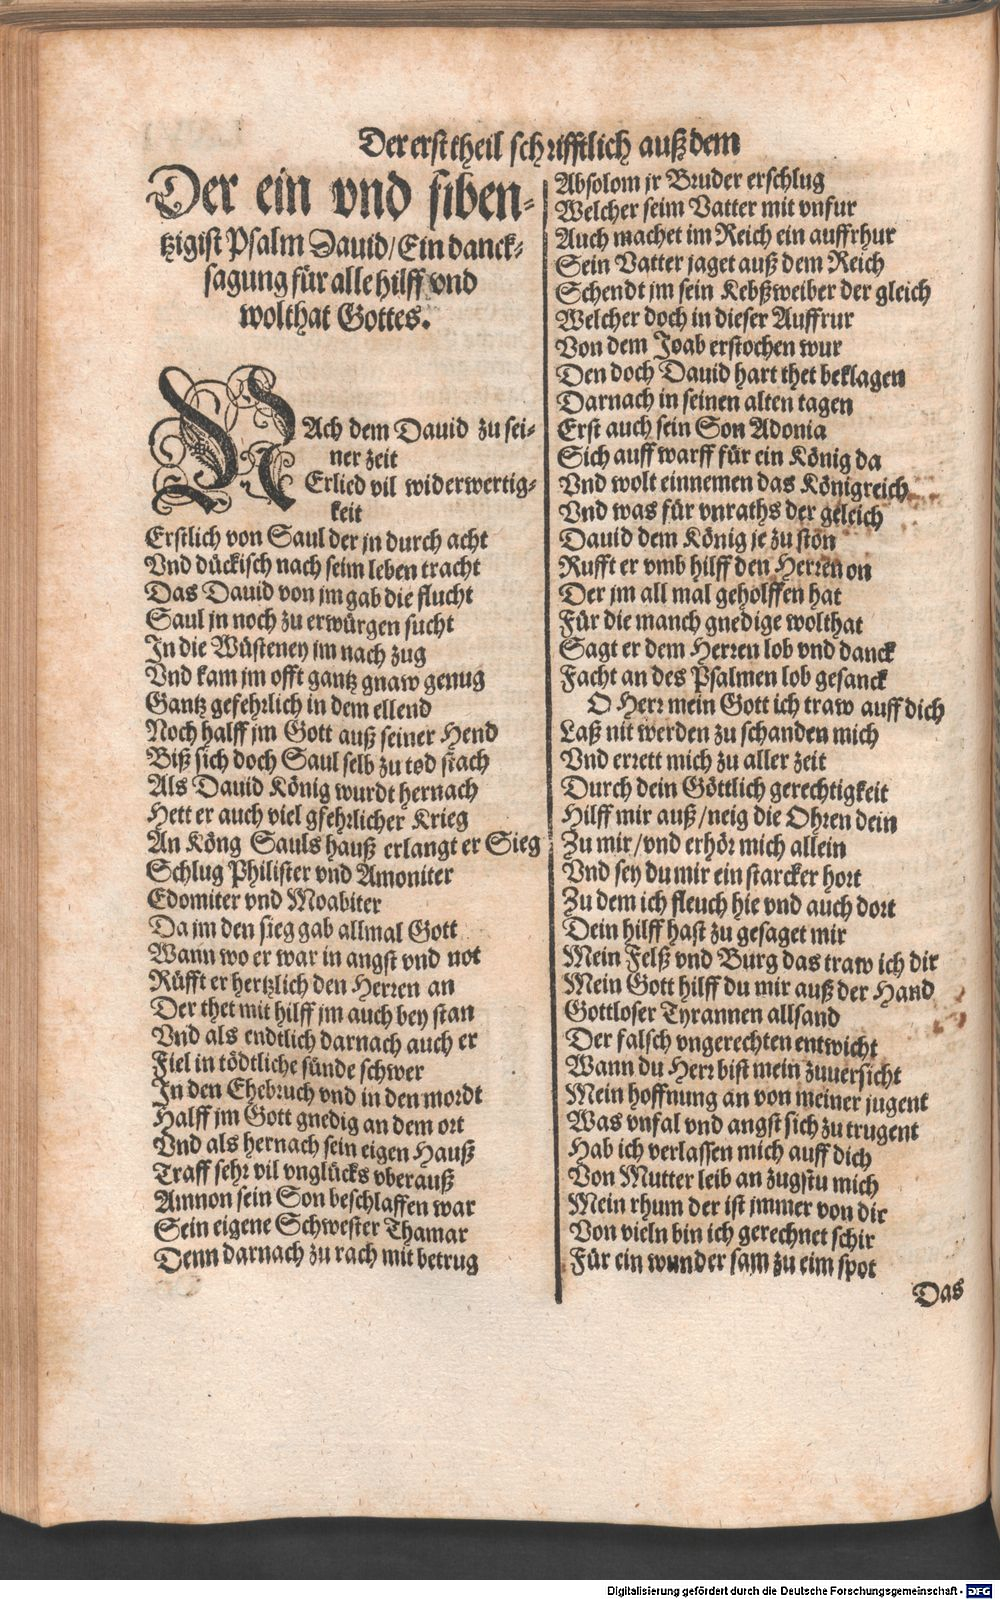 Der erst theil schrifftlich auß dem
Der ein vnd siben-
tzigist Psalm Dauid/ Ein danck-
sagung für alle hilff vnd
wolthat Gottes.
NAch dem Dauid zu sei-
ner zeit
Erlied vil widerwertig-
keit
Erstlich von Saul der jn durch acht
Vnd dückisch nach seim leben tracht
Das Dauid von jm gab die flucht
Saul jn noch zu erwürgen sucht
In die Wüsteney jm nach zug
Vnd kam jm offt gantz gnaw genug
Gantz gefehrlich in dem ellend
Noch halff jm Gott auß seiner Hend
Biß sich doch Saul selb zu tod stach
Als Dauid König wurdt hernach
Hett er auch viel gfehrlicher Krieg
An Köng Sauls hauß erlangt er Sieg
Schlug Philister vnd Amoniter
Edomiter vnd Moabiter
Da jm den sieg gab allmal Gott
Wann wo er war in angst vnd not
Rüfft er hertzlich den Herren an
Der thet mit hilff jm auch bey stan
Vnd als endtlich darnach auch er
Fiel in tödtliche sünde schwer
In den Ehebruch vnd in den mordt
Halff jm Gott gnedig an dem ort
Vnd als hernach sein eigen Hauß
Traff sehr vil vnglücks vberauß
Amnon sein Son beschlaffen war
Sein eigene Schwester Thamar
Denn darnach zu rach mit betrug
Absolom jr Bruder erschlug
Welcher seim Vatter mit vnfur
Auch machet im Reich ein auffrhur
Sein Vatter jaget auß dem Reich
Schendt jm sein Kebßweiber der gleich
Welcher doch in dieser Auffrur
Von dem Joab erstochen wur
Den doch Dauid hart thet beklagen
Darnach in seinen alten tagen
Erst auch sein Son Adonia
Sich auff warff für ein König da
Vnd wolt einnemen das Königreich
Vnd was für vnraths der geleich
Dauid dem König je zu ston
Rufft er vmb hilff den Herren on
Der jm all mal geholffen hat
Für die manch gnedige wolthat
Sagt er dem Herren lob vnd danck
Facht an des Psalmen lob gesanck
O Herr mein Gott ich traw auff dich
Laß nit werden zu schanden mich
Vnd errett mich zu aller zeit
Durch dein Göttlich gerechtigkeit
Hilff mir auß/ neig die Ohren dein
Zu mir/ vnd erhör mich allein
Vnd sey du mir ein starcker hort
Zu dem ich fleuch hie vnd auch dort
Dein hilff hast zu gesaget mir
Mein Felß vnd Burg das traw ich dir
Mein Gott hilff du mir auß der Hand
Gottloser Tyrannen allsand
Der falsch vngerechten entwicht
Wann du Herr bist mein zuuersicht
Mein hoffnung an von meiner jugent
Was vnfal vnd angst sich zu trugent
Hab ich verlassen mich auff dich
Von Mutter leib an zugstu mich
Mein rhum der ist jmmer von dir
Von vieln bin ich gerechnet schir
Für ein wunder sam zu eim spot
Das
Digitalisierung gefördert durch die Deutsche Forschungsgemeinschaft - DFG